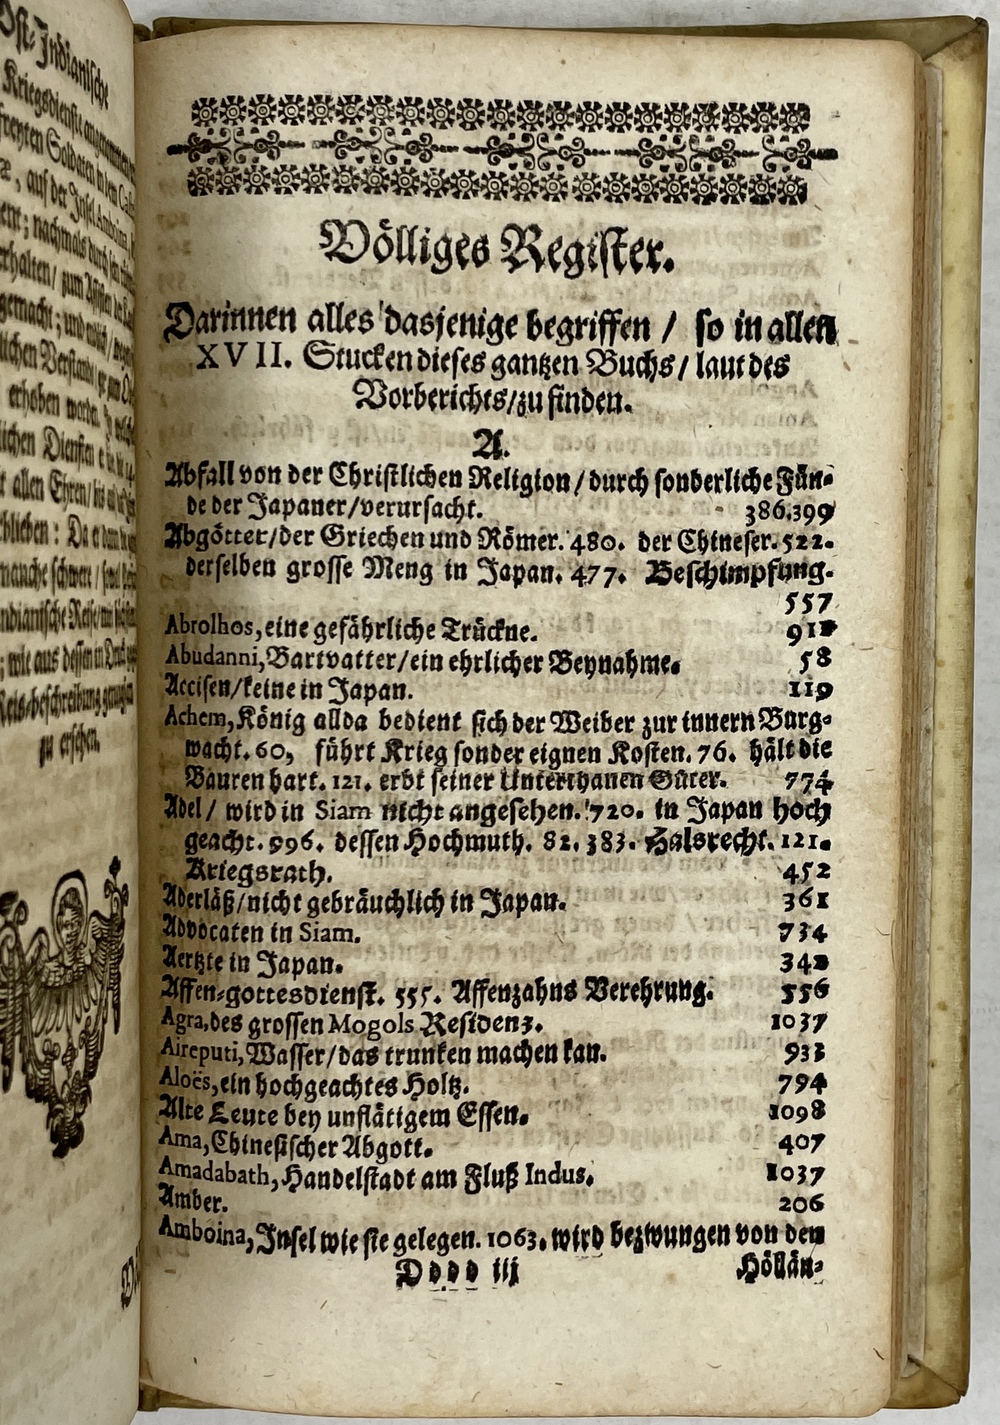 Ost-Indianische
Kriegsdienste angenommen
freyten Soldaten in dem
auf der Insel Amboina,
nachmals durch
erhalten/ zum
gemacht; und
lichen Verstands
erhoben worden.
lichen Diensten
allen Ehren/ bis
blieben: Da
manche schwere /
ndianische Reise/
; wie aus dessen in Druck
Reis-beschreibung
zu ersehen.
Völliges Register.
Darinnen alles dasjenige begriffen / so in allen
XVII. Stucken dieses gantzen Buchs / laut des
Vorberichts/zu finden.
A.
Abfall von der Christlichen Religion / durch sonderliche Fün-
de der Japaner/verursacht. 386.399
Abgötter/der Griechen und Römer. 480. der Chineser. 522.
derselben grosse Meng in Japan. 477. Beschimpfung.
557
Abrolhos, eine gefährliche Trückne.
Abudanni, Bartvatter/ein ehrlicher Beynahme. 58
Accisen/keine in Japan. 119
Achem, König allda bedient sich der Weiber zur innern Burg-
wacht. 60, führt Krieg sonder eignen Kosten. 76. hält die
Bauren hart. 121. erbt seiner Unterthanen Güter. 774
Adel / wird in Siam nicht angesehen. 720. in Japan hoch
geacht. 996. dessen Hochmuth. 82. 383. Halsrecht. 121.
Kriegsrath. 452
Aderläß/nicht gebräuchlich in Japan. 361
Advocaten in Siam. 734
Aertzte in Japan. 342
Affen-gottesdienst. 555. Affenzahns Verehrung. 556
Agra, des grossen Mogols Residenz. 1037
Aireputi, Wasser/das trunken machen kan. 933
Aloës, ein hochgeachtes Holtz. 794
Alte Leute bey unflätigem Essen. 1098
Ama, Chinesischer Abgott. 407
Amadabath, Handelstadt am Fluß Indus. 1037
Amber. 206
Amboina, Insel wie sie gelegen. 1063. wird bezwungen von den
Dddd iij Höllän-